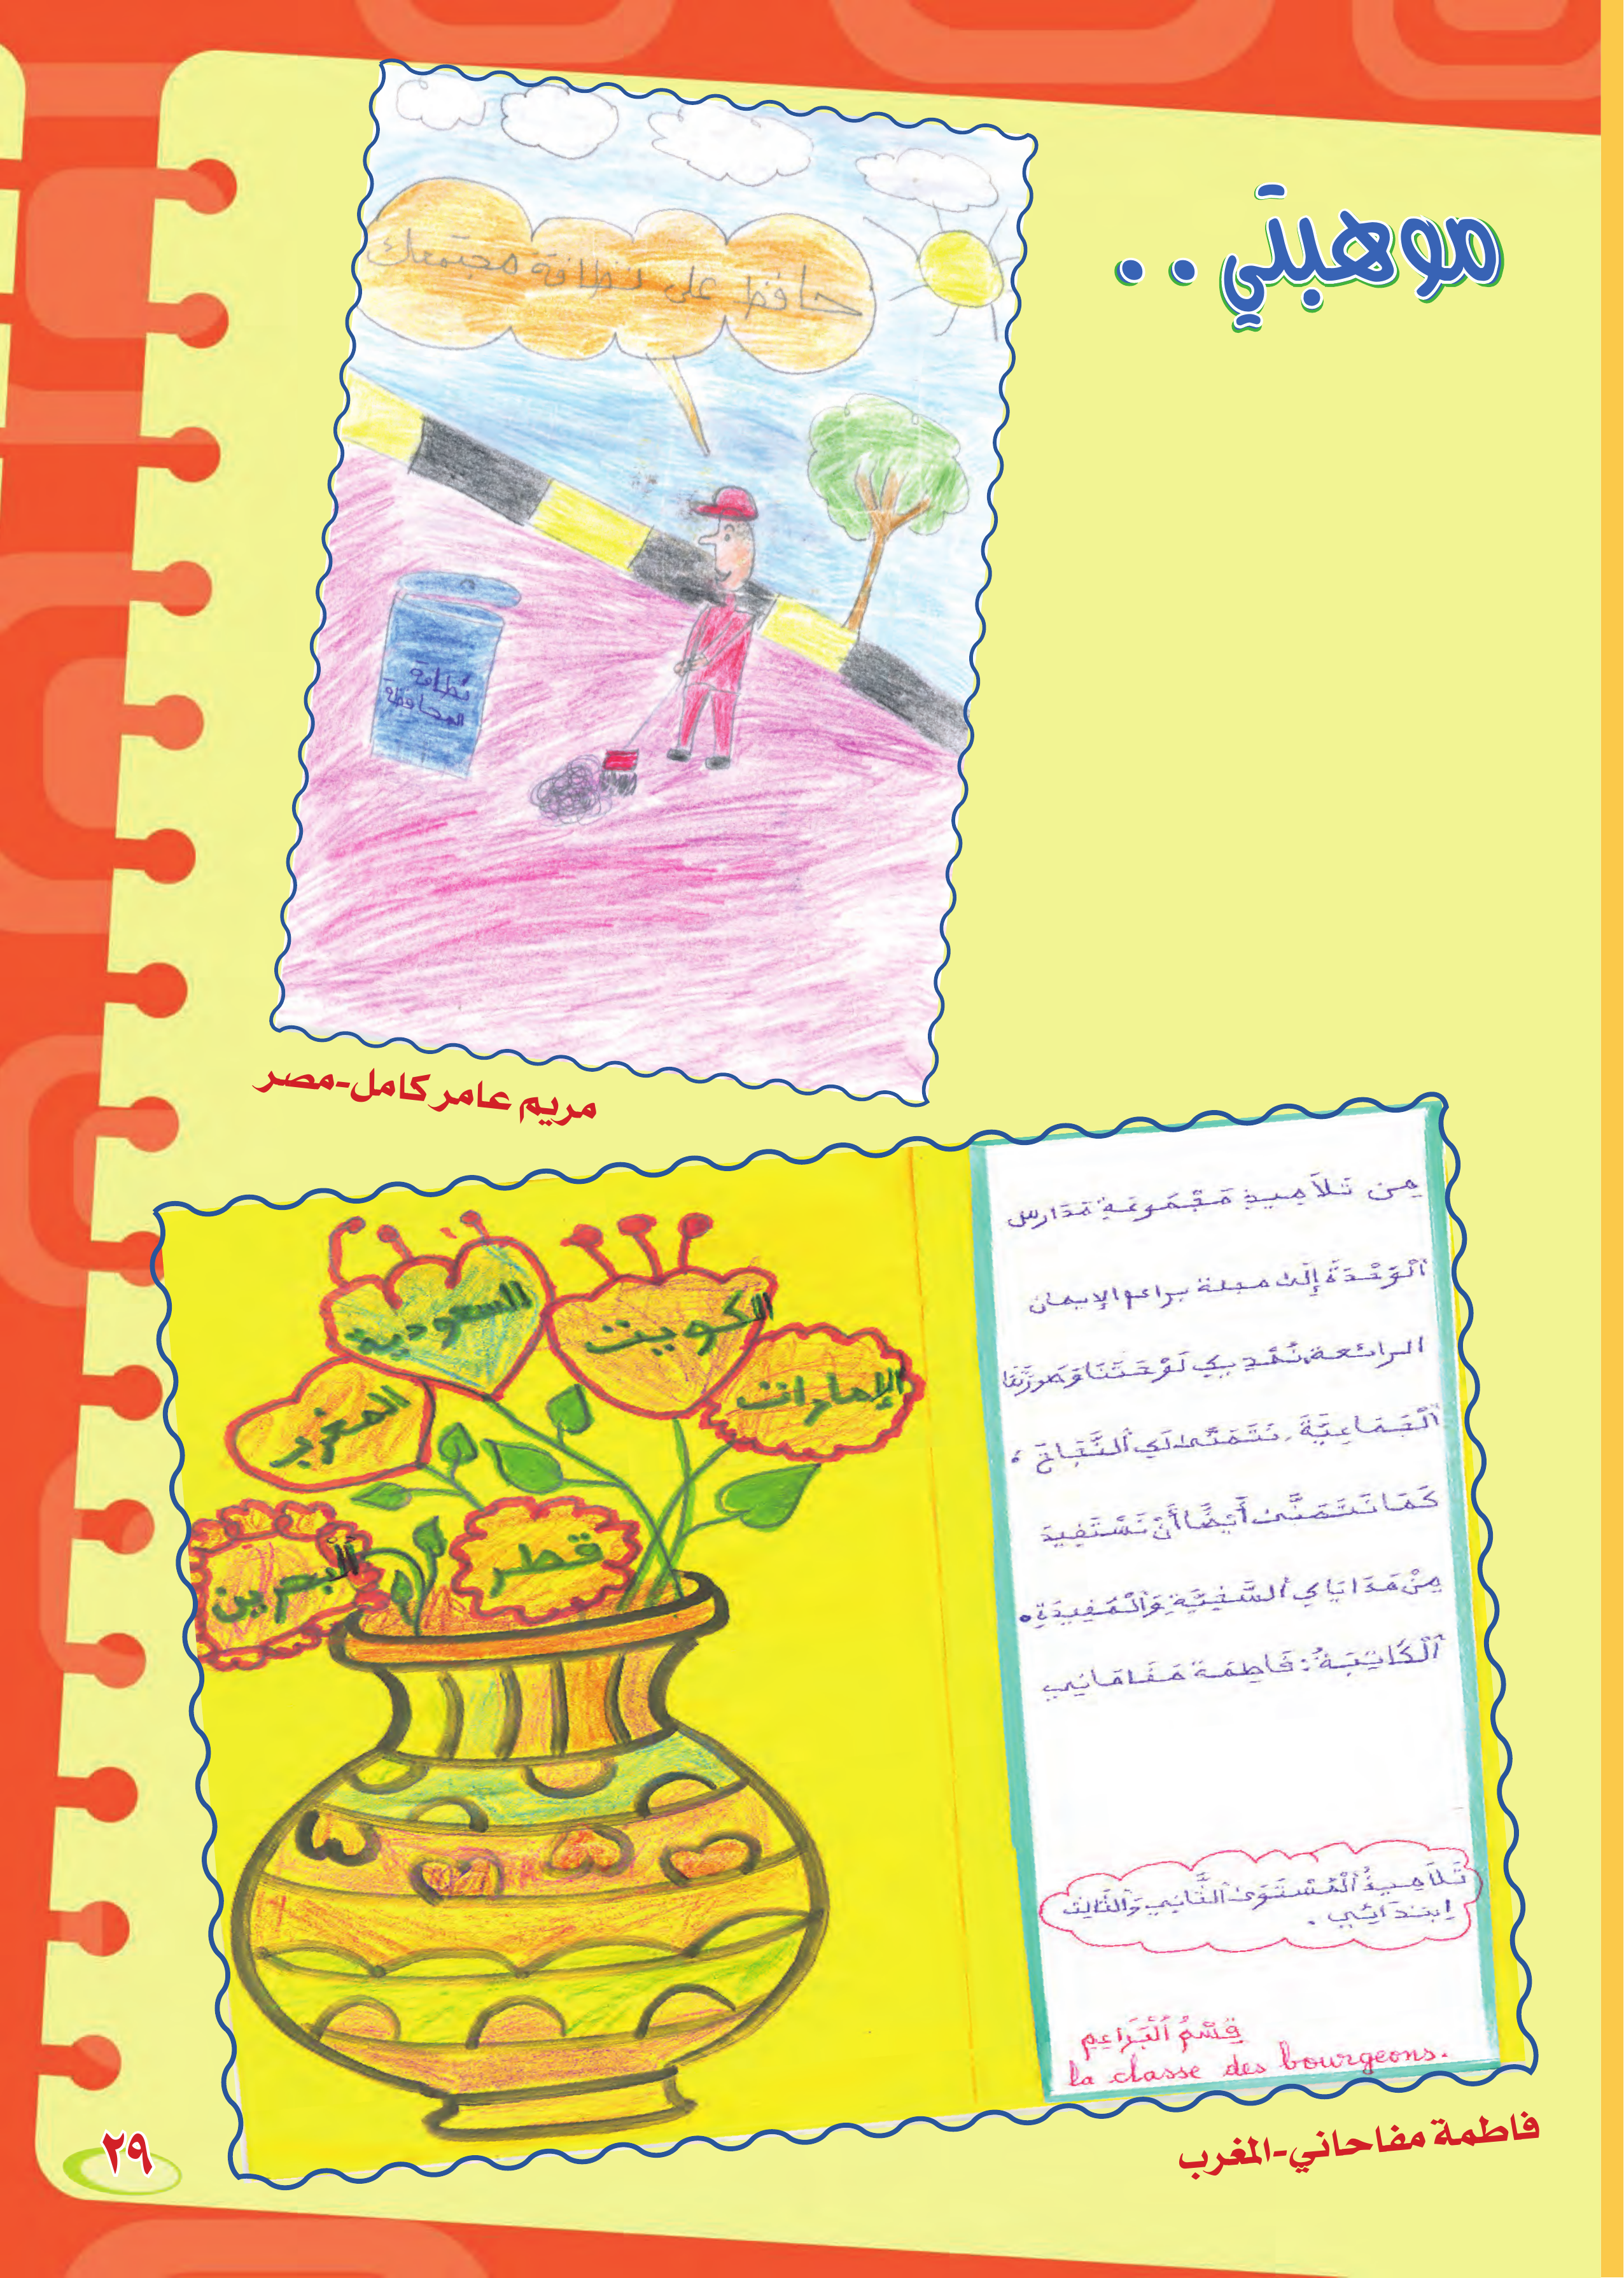 موهبتي ..
حافظ على نظافة مجتمعك
نظافة
المحافظة
مريم عامر كامل-مصر
السعودية
الكويت
الإمارات
المغرب
قطر
ٱلبحرين
مِن تَلاَمِيذِ مَجْمُوعَةِ مَدَارِس
ٱلْوَحْدَةُ إِلَى مجلة براعم الإيمان
الرائعة نُهْدِيكِ لَوْحَتَنَا وَصُورَتَنَا
ٱلْجَمَاعِيَّةَ، نَتَمَنَّى لَكِ ٱلنَّجَاحَ،
كَمَا نَتَمَنَّى أَيْضًا أَنْ نَسْتَفِيدَ
مِنْ هَدَايَاكِ ٱلسَّنِيَّةِ وَٱلْمُفِيدَةِ.
ٱلْكَاتِبَةُ: فَاطِمَة مَفَاحَانِي
تَلاَمِيذُ ٱلْمُسْتَوَى ٱلثَّانِي وَٱلثَّالِث
اِبتدَائِي.
قِسْمُ ٱلْبَرَاعِم
la classe des bourgeons.
فاطمة مفاحاني-المغرب
٢٩